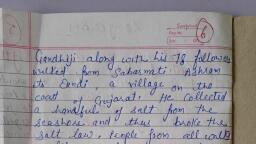 6
Gandhiji along with his 78 followers
walked from Sabarmati Ashram
to Dandi, a village on the
coast of Gujarat. He collected
a handful of salt from the
seashore and thus broke the
salt law. People from all